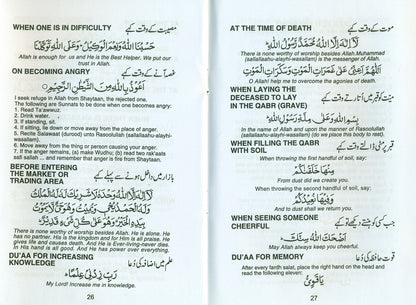 WHEN ONE IS IN DIFFICULTY مصیبت کے وقت کہے
حَسْبُنَا اللّٰهُ وَنِعْمَ الْوَكِيْلُ وَعَلَى اللّٰهِ تَوَكَّلْنَا
Allah is enough for us and He is the Best Helper. We put our
trust in Allah.
ON BECOMING ANGRY غصہ آنے کے وقت کہے
اَعُوْذُ بِاللّٰهِ مِنَ الشَّيْطٰنِ الرَّجِيْمِ
I seek refuge in Allah from Shaytaan, the rejected one.
The following are Sunnats to be done when one becomes angry:
1. Read Ta'awwuz.
2. Drink water.
3. If standing, sit.
4. If sitting, lie down or move away from the place of anger.
5. Recite Salawaat (durood) unto Rasoolullah (sallallaahu-alayhi-
wasallam).
6. Move away from the thing or person causing your anger.
7. If the anger remains, (a) make Wudhu; (b) read two rak'aats
nafl salaah ... and remember that anger is fire from Shaytaan.
BEFORE ENTERING
THE MARKET OR
TRADING AREA
بازار میں داخل ہونے سے پہلے کہے
لَا اِلٰهَ اِلَّا اللّٰهُ وَحْدَهٗ لَا شَرِيْكَ لَهٗ لَهُ الْمُلْكُ
وَلَهُ الْحَمْدُ يُحْيِيْ وَيُمِيْتُ وَهُوَ حَيٌّ لَّا يَمُوْتُ
بِيَدِهِ الْخَيْرُ وَهُوَ عَلٰى كُلِّ شَيْءٍ قَدِيْرٌ
There is none worthy of worship besides Allah. He is alone. He
has no partner. His is the kingdom and for Him is all praise. He
gives life and causes death. And He is Ever-living-never dies.
In His hand is all good. And He has power over everything.
DU'AA FOR INCREASING
KNOWLEDGE
علم میں اضافہ کی دعا
رَبِّ زِدْنِيْ عِلْمًا
My Lord! Increase me in knowledge.
26
AT THE TIME OF DEATH موت کے وقت کہے
لَا اِلٰهَ اِلَّا اللّٰهُ مُحَمَّدٌ رَّسُوْلُ اللّٰهِ
There is none worthy of worship besides Allah.Muhammad
(sallallaahu-alayhi-wasallam) is the messenger of Allah.
اَللّٰهُمَّ اَعِنِّيْ عَلٰى غَمَرَاتِ الْمَوْتِ وَسَكَرَاتِ الْمَوْتِ
O Allah! help me to overcome the agonies of death.
WHEN LAYING THE
DECEASED TO LAY
IN THE QABR (GRAVE)
میت کو قبر میں اتارتے وقت کہے
بِسْمِ اللّٰهِ وَعَلٰى مِلَّةِ رَسُوْلِ اللّٰهِ
In the name of Allah and upon the manner of Rasoolullah
(sallallaahu-alayhi-wasallam) (do we place this body to rest).
WHEN FILLING THE QABR
WITH SOIL
قبر پر مٹی ڈالتے وقت کہے
When throwing the first handful of soil, say;
مِنْهَا خَلَقْنٰكُمْ
From dust did we create you.
When throwing the second handful of soil, say;
وَفِيْهَا نُعِيْدُكُمْ
And to dust shall we return you.
WHEN SEEING SOMEONE
CHEERFUL
اَضْحَكَ اللّٰهُ سِنَّكَ
May Allah always keep you cheerful.
DU'AA FOR MEMORY قوت حافظہ کی دعا
After every farth salat, place the right hand on the head and
read the following eleven times:
يَا قَوِيُّ
27